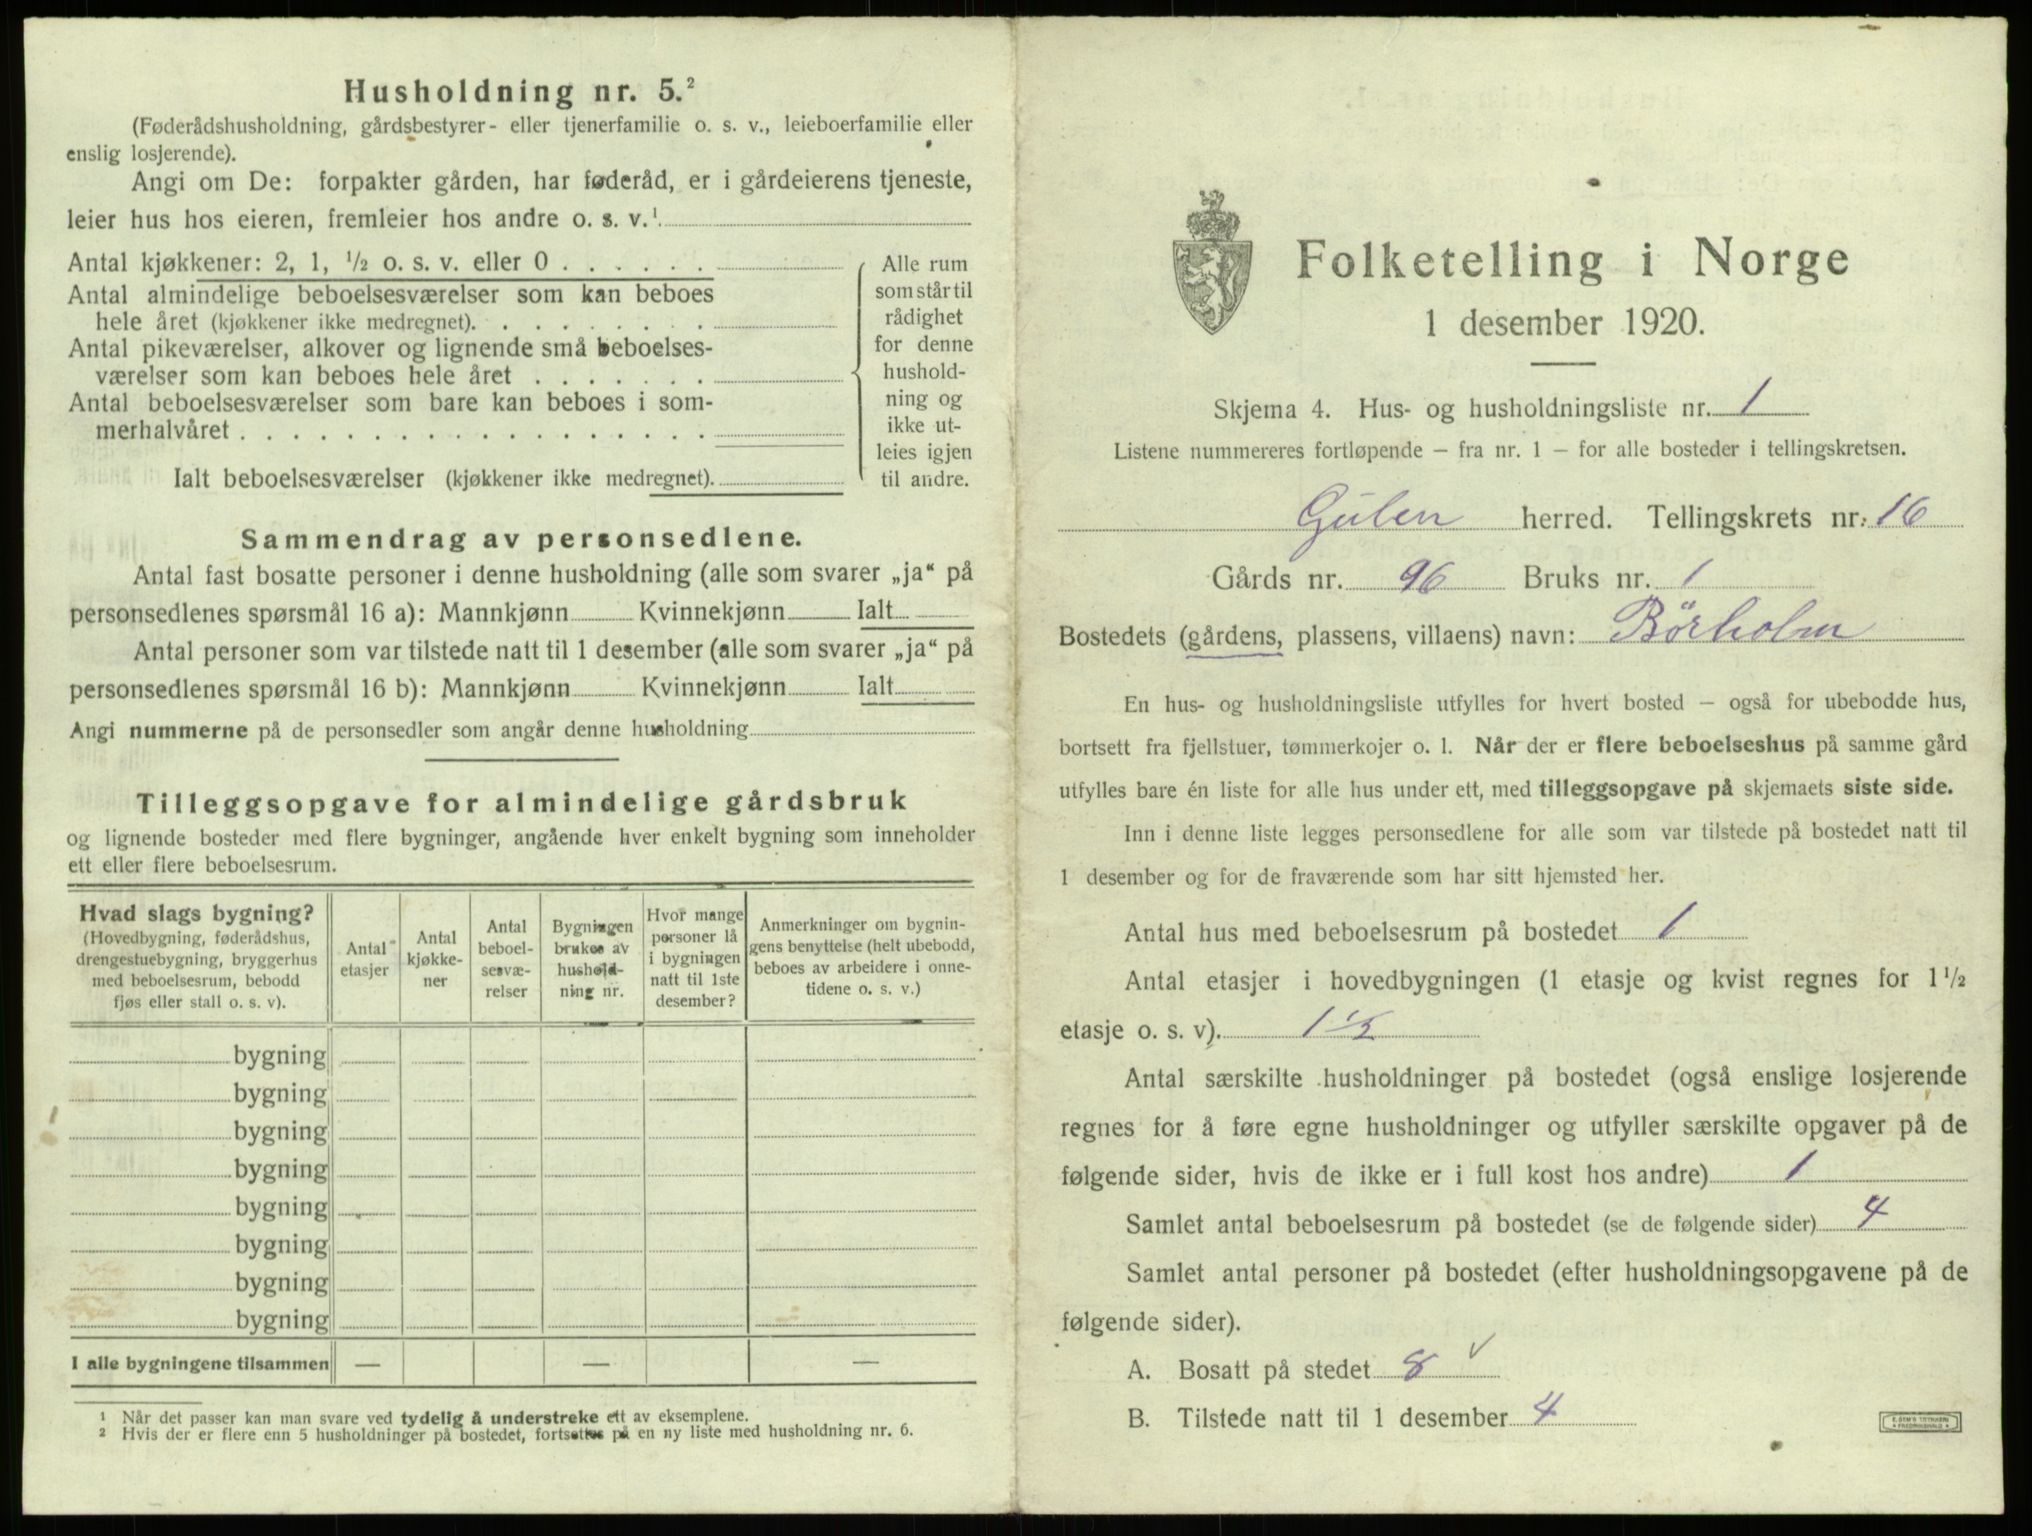 Husholdning nr. 5.²
(Føderådshusholdning, gårdsbestyrer- eller tjenerfamilie o. s. v., leieboerfamilie eller
enslig losjerende).
Angi om De: forpakter gården, har føderåd, er i gårdeierens tjeneste,
leier hus hos eieren, fremleier hos andre o. s. v.¹
Antal kjøkkener: 2, 1, ½ o. s. v. eller 0
Antal almindelige beboelsesværelser som kan beboes
hele året (kjøkkener ikke medregnet).
Antal pikeværelser, alkover og lignende små beboelses-
værelser som kan beboes hele året
Antal beboelsesværelser som bare kan beboes i som-
merhalvåret
Ialt beboelsesværelser (kjøkkener ikke medregnet).
Alle rum
som står til
rådighet
for denne
hushold-
ning og
ikke ut-
leies igjen
til andre.
Sammendrag av personsedlene.
Antal fast bosatte personer i denne husholdning (alle som svarer „ja“ på
personsedlenes spørsmål 16 a): Mannkjønn Kvinnekjønn Ialt
Antal personer som var tilstede natt til 1 desember (alle som svarer „ja“ på
personsedlenes spørsmål 16 b): Mannkjønn Kvinnekjønn Ialt
Angi nummerne på de personsedler som angår denne husholdning
Tilleggsopgave for almindelige gårdsbruk
og lignende bosteder med flere bygninger, angående hver enkelt bygning som inneholder
ett eller flere beboelsesrum.
Hvad slags bygning?
(Hovedbygning, føderådshus,
drengestuebygning, bryggerhus
med beboelsesrum, bebodd
fjøs eller stall o. s. v).
Antal
etasjer
Antal
kjøkke-
ner
Antal
beboel-
sesvæ-
relser
Bygningen
brukes av
hushold-
ning nr.
Hvor mange
personer lå
i bygningen
natt til 1ste
desember?
Anmerkninger om bygnin-
gens benyttelse (helt ubebodd,
beboes av arbeidere i onne-
tidene o. s. v.)
bygning
bygning
bygning
bygning
bygning
bygning
bygning
bygning
I alle bygningene tilsammen — — —
¹ Når det passer kan man svare ved tydelig å understreke ett av eksemplene.
² Hvis der er flere enn 5 husholdninger på bostedet, fortsettes på en ny liste med husholdning nr. 6.
Folketelling i Norge
1 desember 1920.
Skjema 4. Hus- og husholdningsliste nr. 1
Listene nummereres fortløpende – fra nr. 1 – for alle bosteder i tellingskretsen.
Gulen herred. Tellingskrets nr. 16
Gårds nr. 96 Bruks nr. 1
Bostedets (gårdens, plassens, villaens) navn: Börholm
En hus- og husholdningsliste utfylles for hvert bosted – også for ubebodde hus,
bortsett fra fjellstuer, tømmerkojer o. l. Når der er flere beboelseshus på samme gård
utfylles bare én liste for alle hus under ett, med tilleggsopgave på skjemaets siste side.
Inn i denne liste legges personsedlene for alle som var tilstede på bostedet natt til
1 desember og for de fraværende som har sitt hjemsted her.
Antal hus med beboelsesrum på bostedet 1
Antal etasjer i hovedbygningen (1 etasje og kvist regnes for 1½
etasje o. s. v). 1½
Antal særskilte husholdninger på bostedet (også enslige losjerende
regnes for å føre egne husholdninger og utfyller særskilte opgaver på de
følgende sider, hvis de ikke er i full kost hos andre) 1
Samlet antal beboelsesrum på bostedet (se de følgende sider) 4
Samlet antal personer på bostedet (efter husholdningsopgavene på de
følgende sider).
A. Bosatt på stedet 8 v
B. Tilstede natt til 1 desember 4